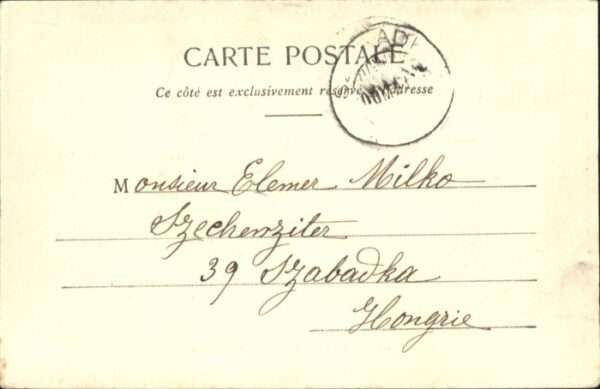 CARTE POSTALE
Ce côté est exclusivement réservé à l'adresse
Monsieur Elemer Milko
Szechenziter
39 Szabadka
Hongrie